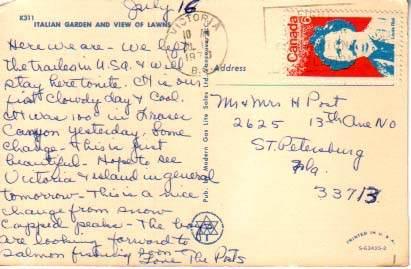 July 16
K311
ITALIAN GARDEN AND VIEW OF LAWNS
Here we are - We left
the trailer in U.S.A. & will
stay here tonite. It is our
first cloudy day & cool.
It was 100 in Frazer
Canyon yesterday. Some
change - This is just
beautiful - Hope to see
Victoria & island in general
tomorrow - This is a nice
change from snow
capped peaks - The boys
are looking forward to
salmon fishing soon -
Love The Posts
Pub. by Modern Gas Lite Sales Ltd. Vancouver
VICTORIA
B.C.
Canada
6
Address
Mr & Mrs H Post
2625 13th Ave No
St. Petersburg
Fla.
33713
PRINTED IN U.S.A.
S-63455-2